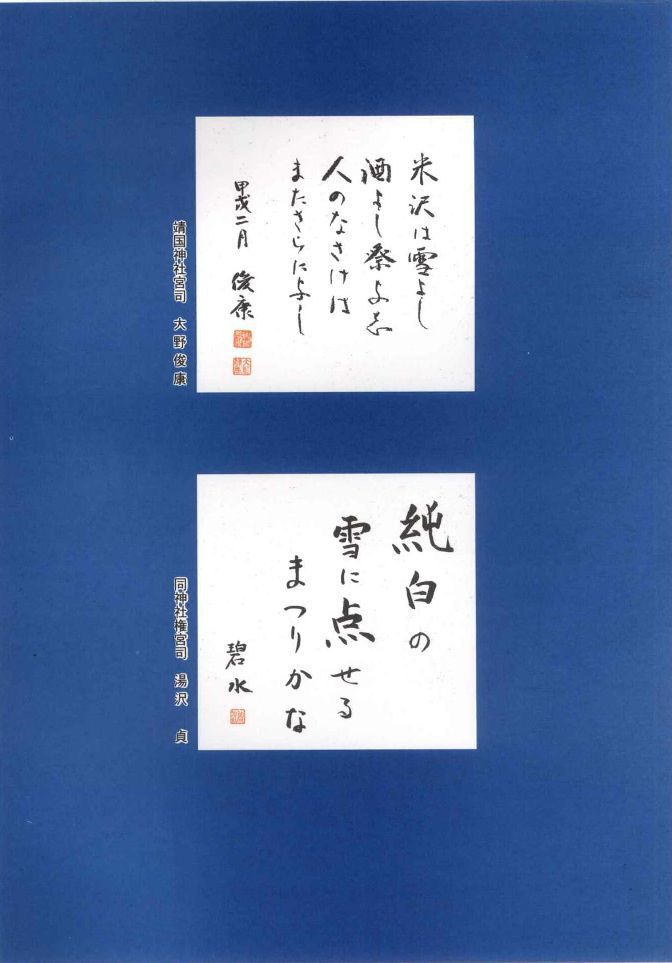 米沢は雪よし
酒よし祭よし
人のなさけは
またさらによし
甲戌二月 俊康
靖国神社宮司 大野俊康
純白の
雪に点せる
まつりかな
碧水
同神社権宮司 湯沢 貞